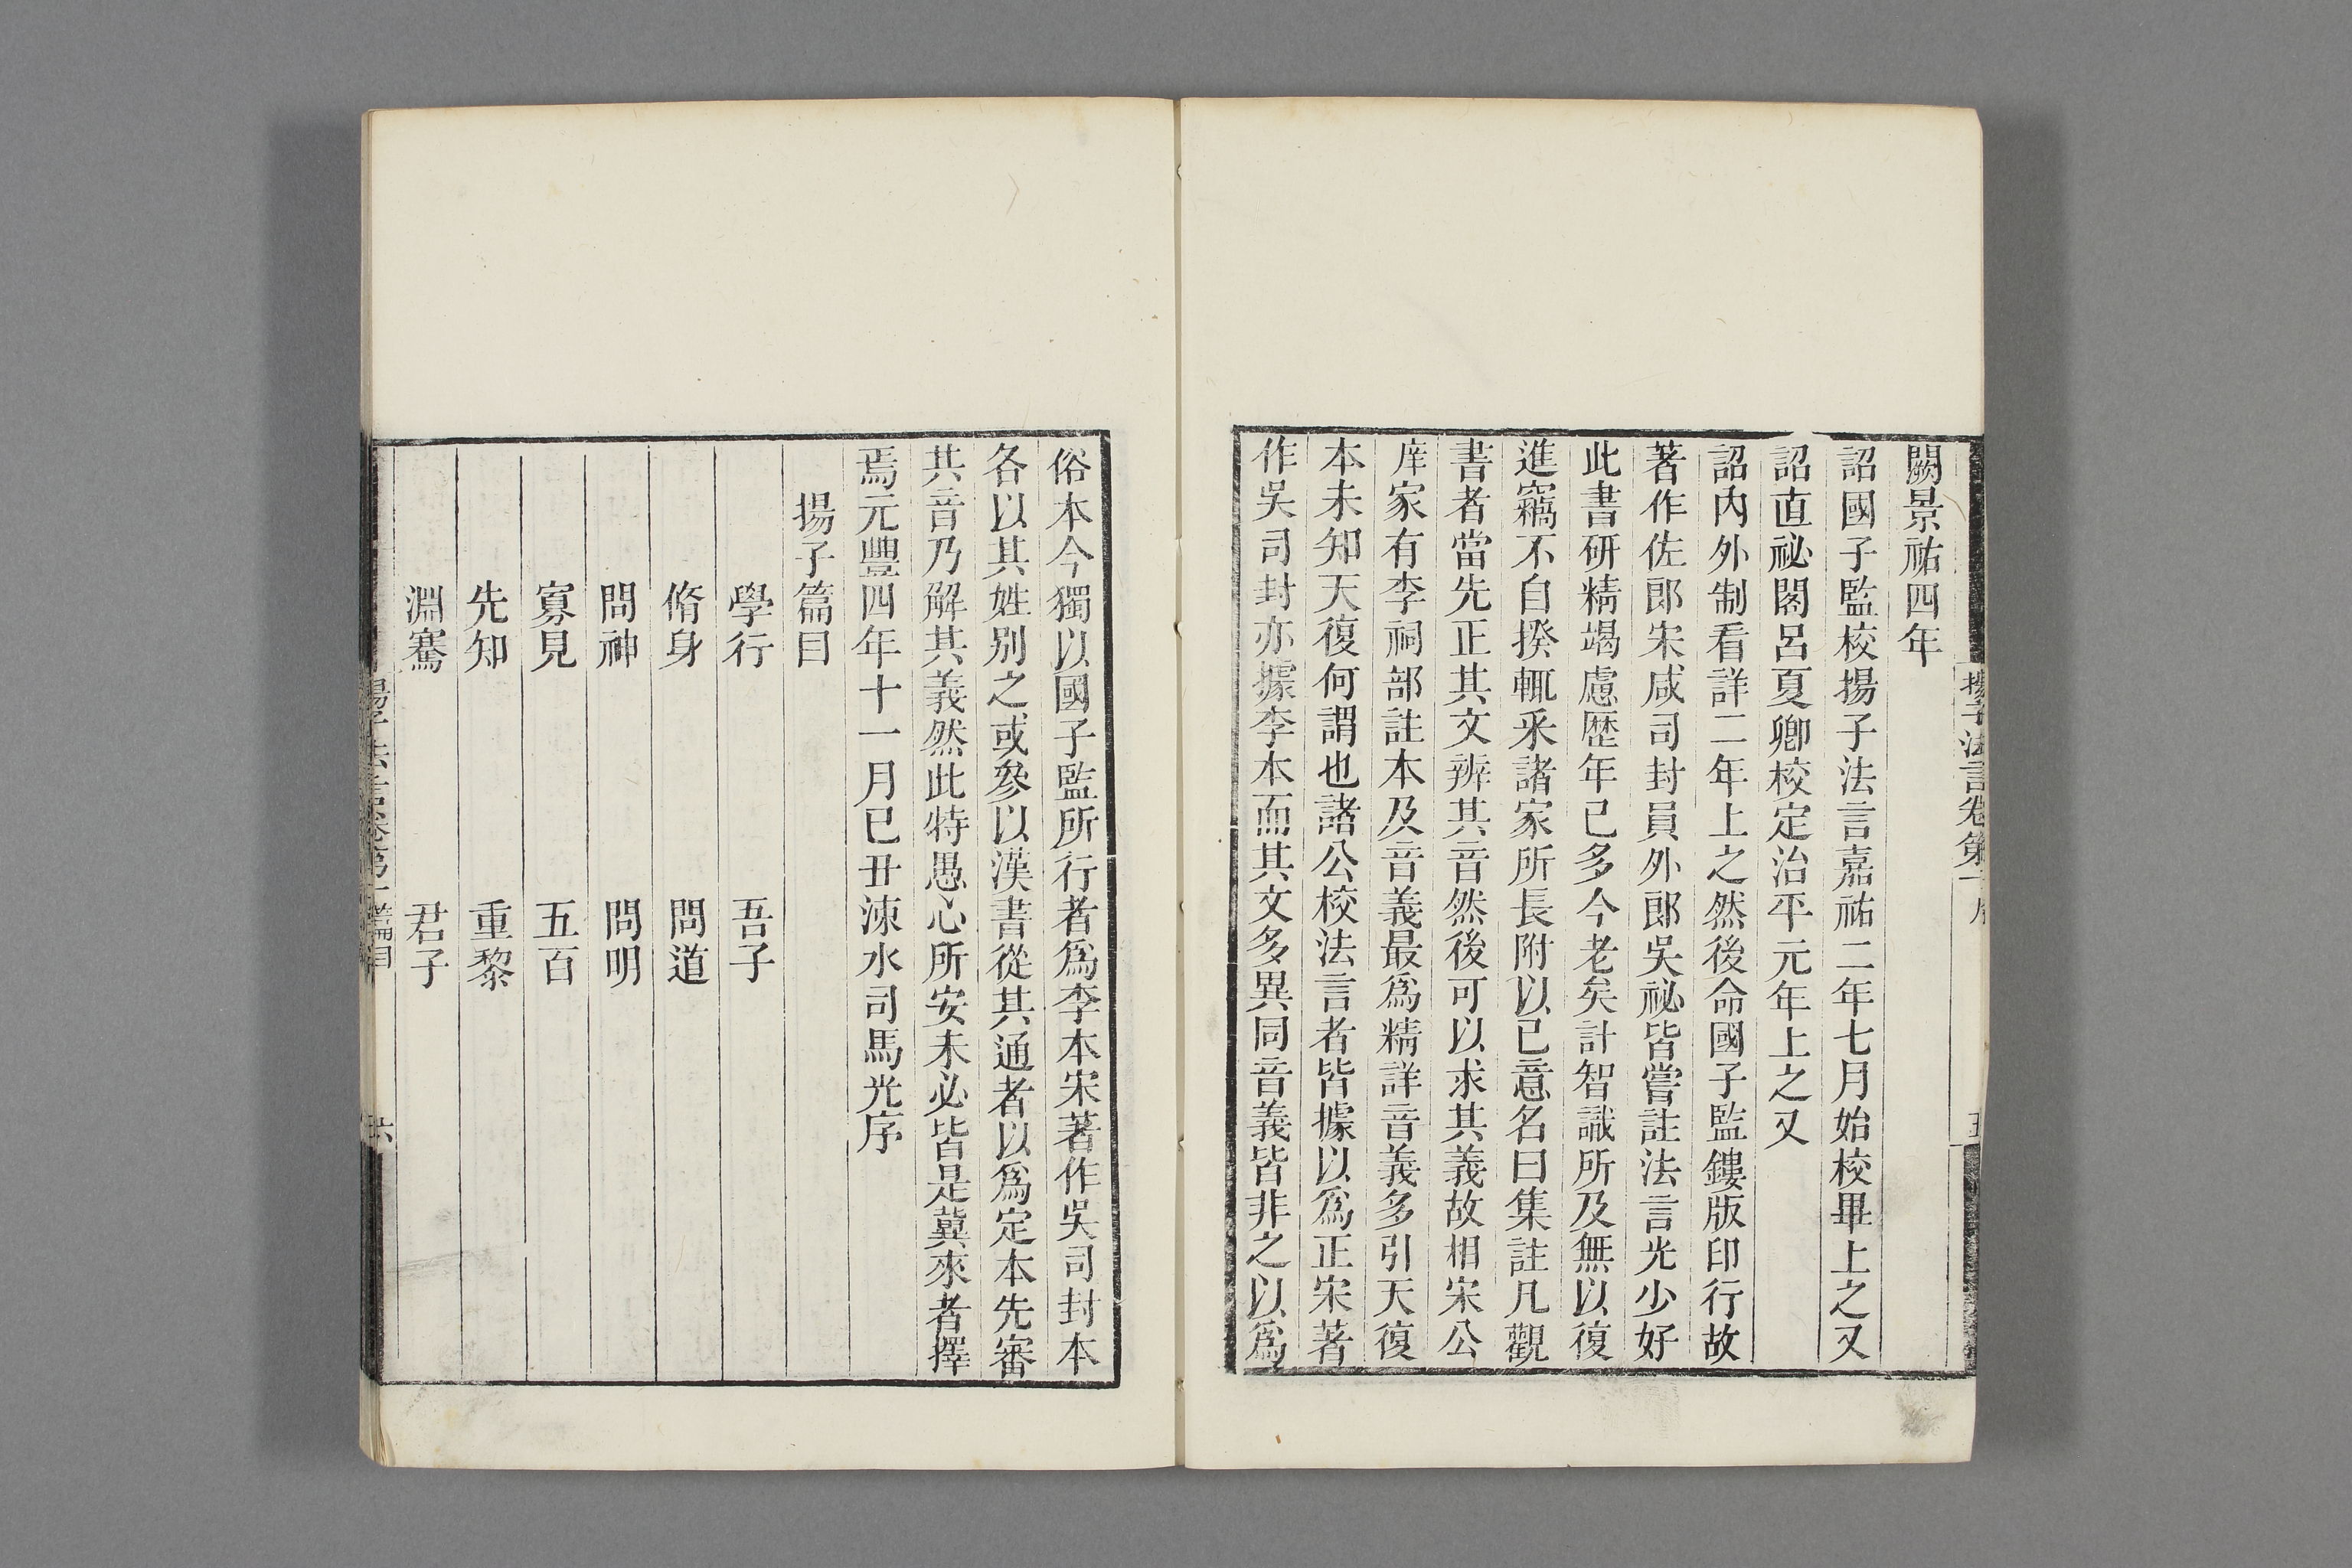 揚子法言卷第一 序
五
闕景祐四年
詔國子監校揚子法言嘉祐二年七月始校畢上之又
詔直祕閣呂夏卿校定治平元年上之又
詔內外制看詳二年上之然後命國子監鏤版印行故
著作佐郎宋咸司封員外郎吳祕皆嘗註法言光少好
此書研精竭慮歷年已多今老矣計智識所及無以復
進竊不自揆輒采諸家所長附以己意名曰集註凡觀
書者當先正其文辨其音然後可以求其義故相宋公
庠家有李祠部註本及音義最爲精詳音義多引天復
本未知天復何謂也諸公校法言者皆據以爲正宋著
作吳司封亦據李本而其文多異同音義皆非之以爲
俗本今獨以國子監所行者爲李本宋著作吳司封本
各以其姓别之或參以漢書從其通者以爲定本先審
其音乃解其義然此特愚心所安未必皆是冀來者擇
焉元豐四年十一月己丑涑水司馬光序
揚子篇目
學行 吾子
脩身 問道
問神 問明
寡見 五百
先知 重黎
淵騫 君子
揚子法言卷第一 篇目
六